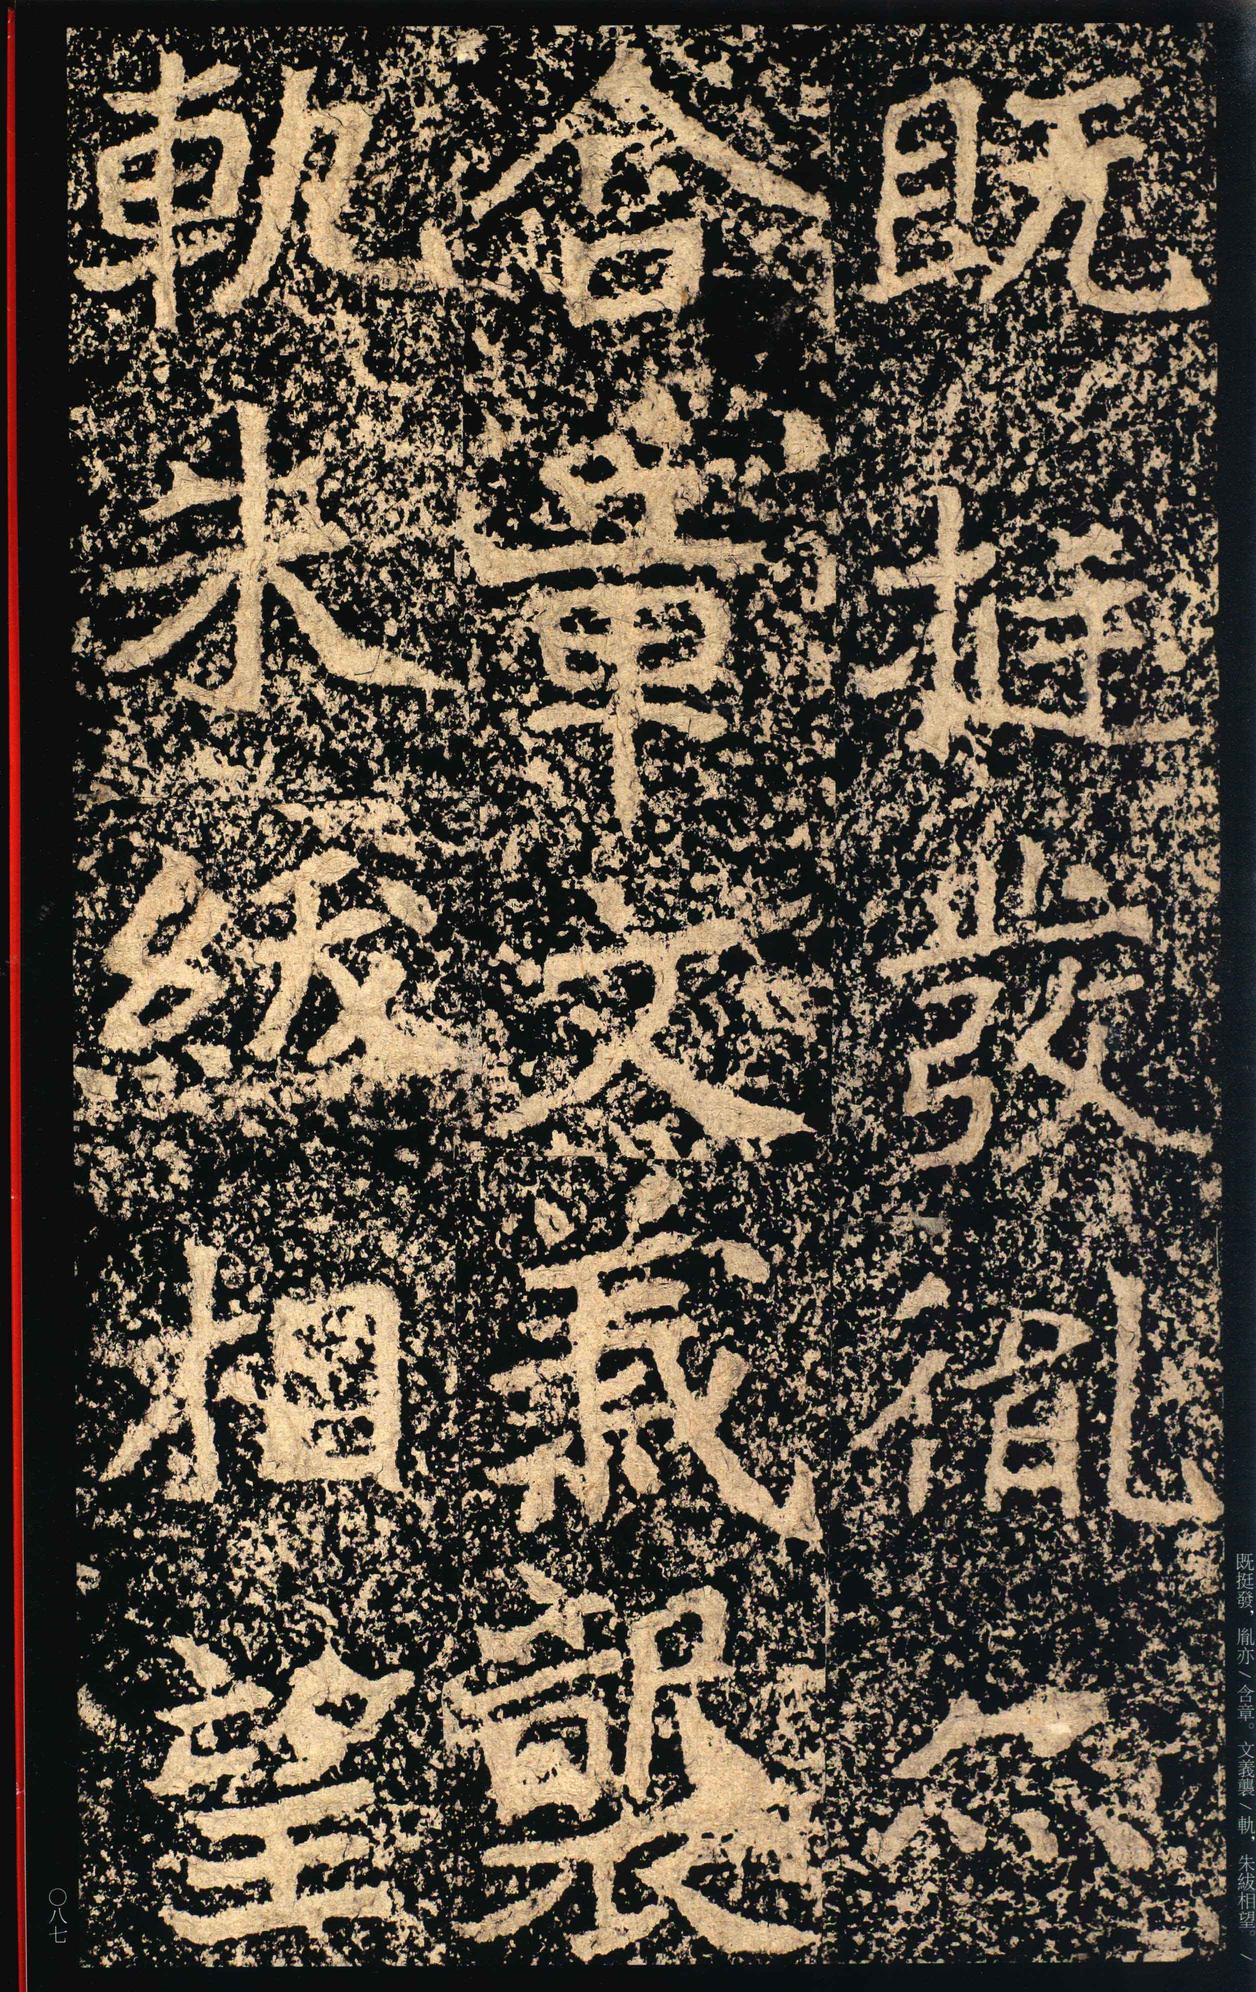 既挺發胤亦
含章文義襲
軌朱紱相望
既挺發　胤亦／含章　文義襲／軌　朱紱相望。／
〇八七